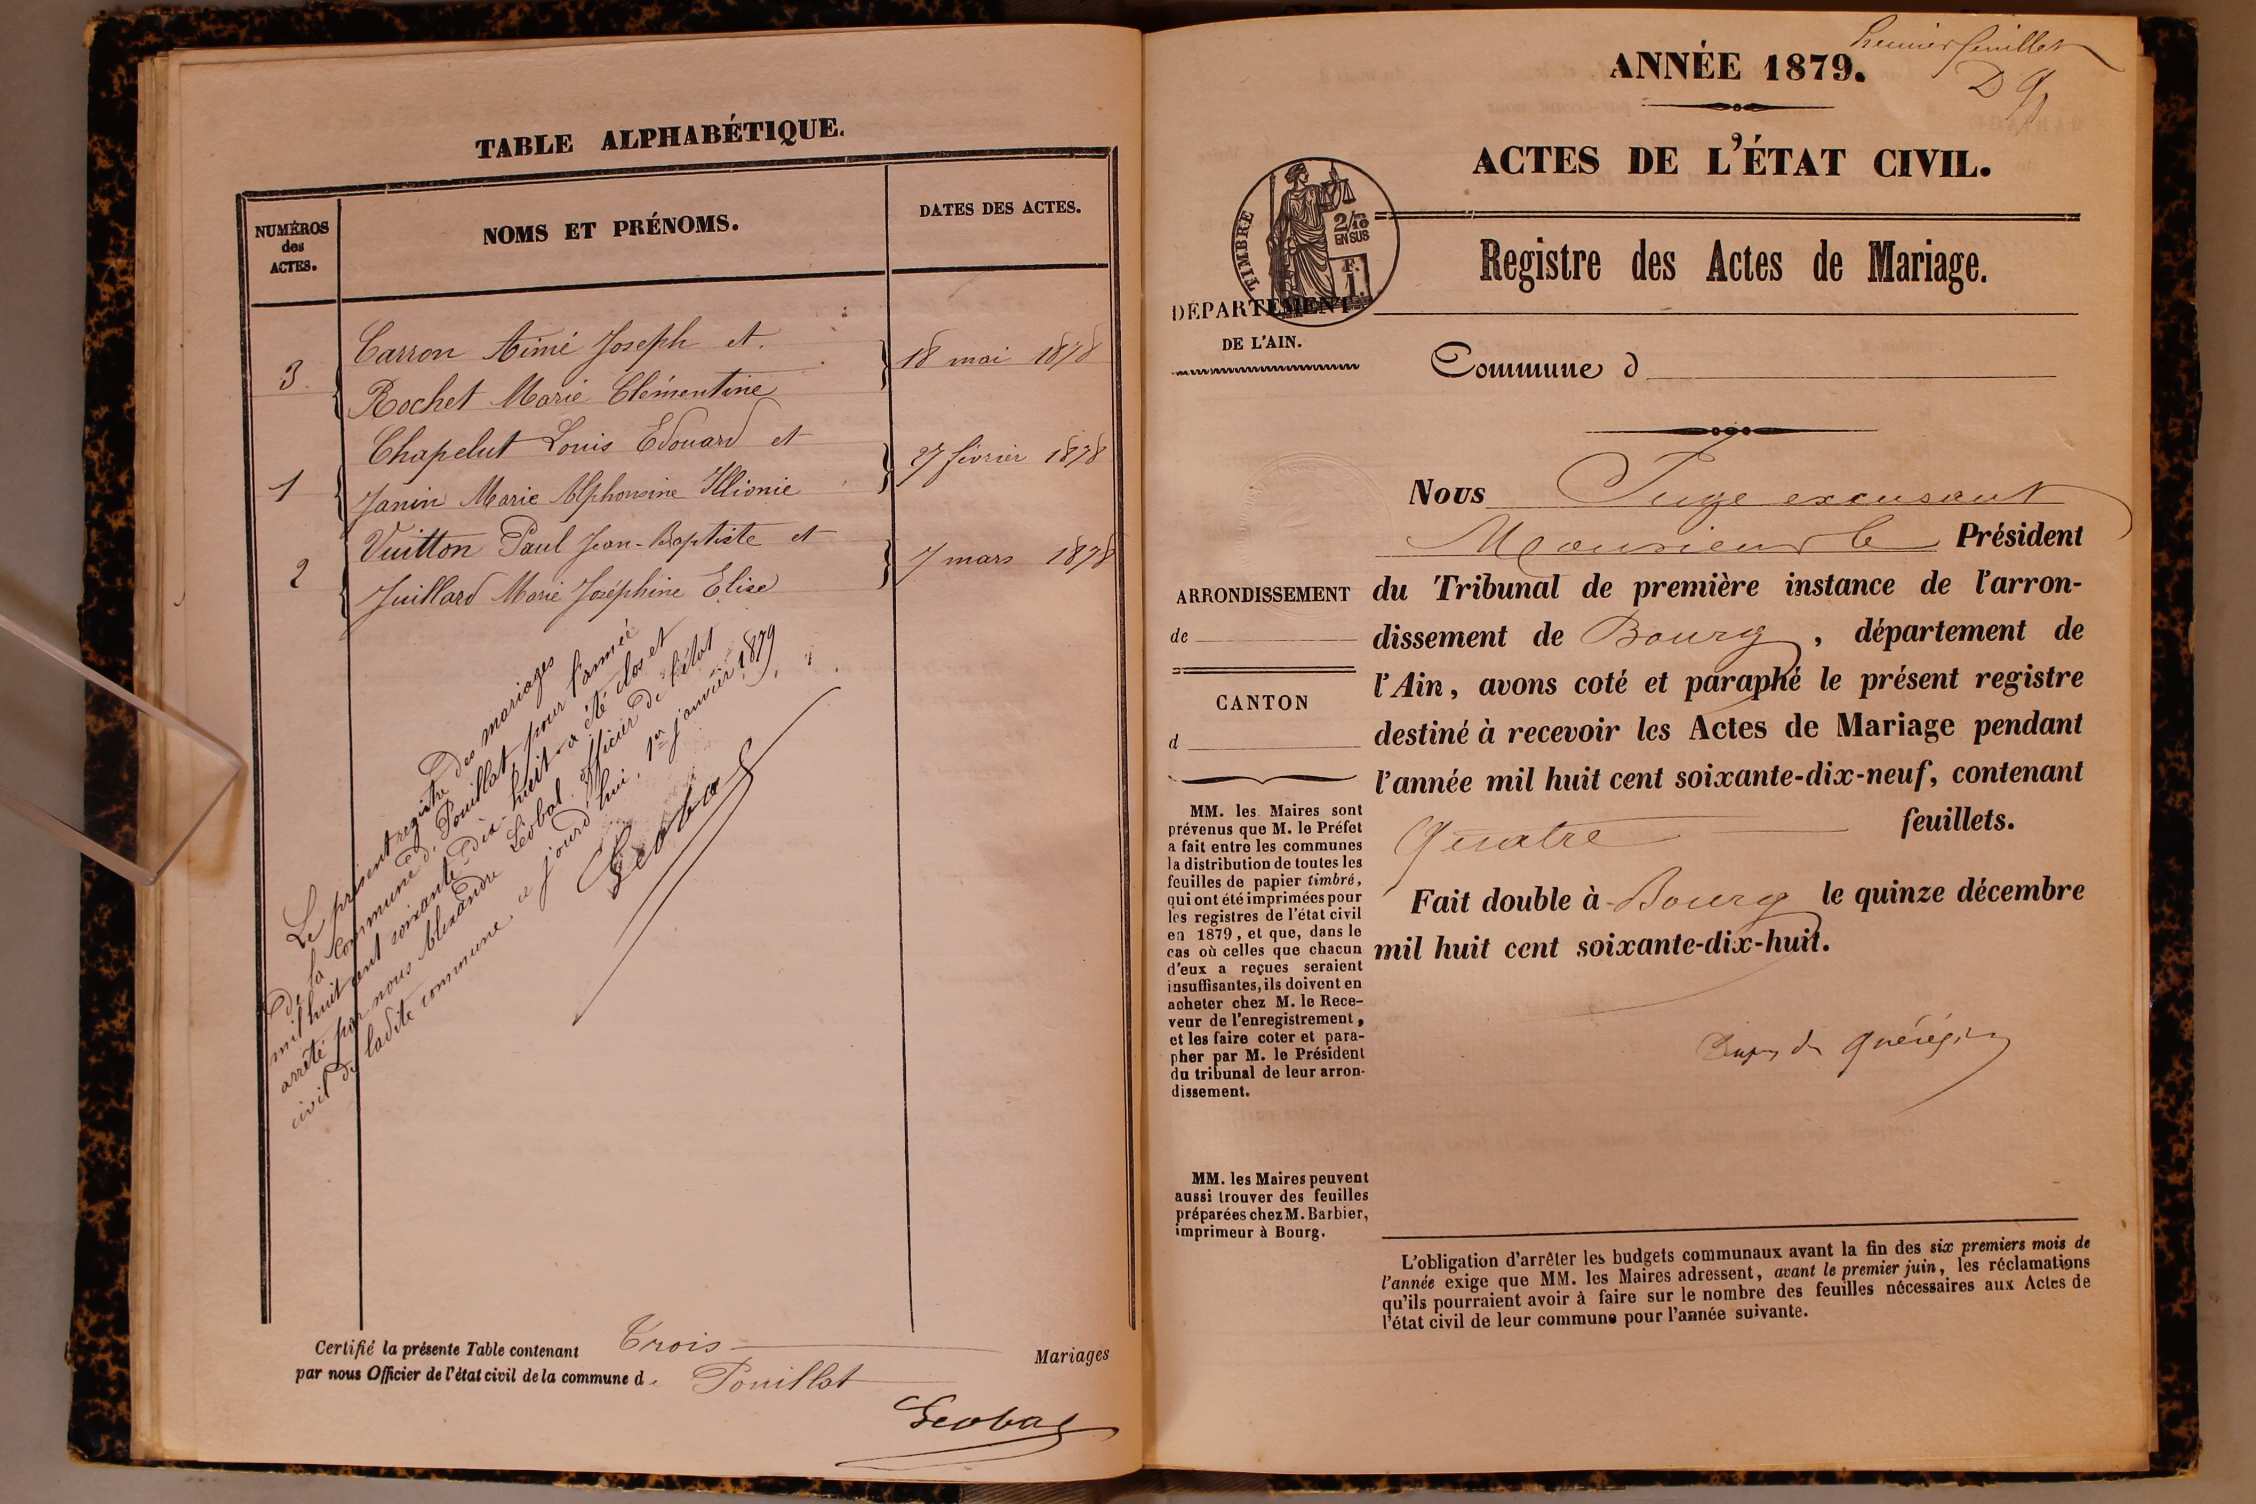 TABLE ALPHABÉTIQUE.
NUMÉROS
des
ACTES.
NOMS ET PRÉNOMS.
DATES DES ACTES.
3
Carron Aimé Joseph et
Rochet Marie Clémentine
18 mai 1878
1
Chapelut Louis Edouard et
Janin Marie Alphonsine
27 février 1878
2
Vuitton Paul Jean-Baptiste et
Juillard Marie Joséphine Elise
7 mars 1878
Le présent registre des mariages
de la commune de Pouillat, pour l'année
mil huit cent soixante-dix-huit a été clos et
arrêté par nous Alexandre Léobal officier de l'état
civil de ladite commune ce jourd'hui, 1er janvier 1879
Léobal
Certifié la présente Table contenant Trois Mariages
par nous Officier de l'état civil de la commune de Pouillat
Léobal
Premier feuillet
ANNÉE 1879.
ACTES DE L'ÉTAT CIVIL.
TIMBRE
2/10
EN SUS
F.
1.
Registre des Actes de Mariage.
DÉPARTEMENT
DE L'AIN.
Commune d
Nous Juge excusant
Monsieur le Président
du Tribunal de première instance de l'arron-
dissement de Bourg, département de
l'Ain, avons coté et paraphé le présent registre
destiné à recevoir les Actes de Mariage pendant
l'année mil huit cent soixante-dix-neuf, contenant
Quatre feuillets.
Fait double à Bourg le quinze décembre
mil huit cent soixante-dix-huit.
ARRONDISSEMENT
de
CANTON
d
MM. les Maires sont
prévenus que M. le Préfet
a fait entre les communes
la distribution de toutes les
feuilles de papier timbré,
qui ont été imprimées pour
les registres de l'état civil
en 1879, et que, dans le
cas où celles que chacun
d'eux a reçues seraient
insuffisantes, ils doivent en
acheter chez M. le Rece-
veur de l'enregistrement,
et les faire coter et para-
pher par M. le Président
du tribunal de leur arron-
dissement.
MM. les Maires peuvent
aussi trouver des feuilles
préparées chez M. Barbier,
imprimeur à Bourg.
L'obligation d'arrêter les budgets communaux avant la fin des six premiers mois de
l'année exige que MM. les Maires adressent, avant le premier juin, les réclamations
qu'ils pourraient avoir à faire sur le nombre des feuilles nécessaires aux Actes de
l'état civil de leur commune pour l'année suivante.